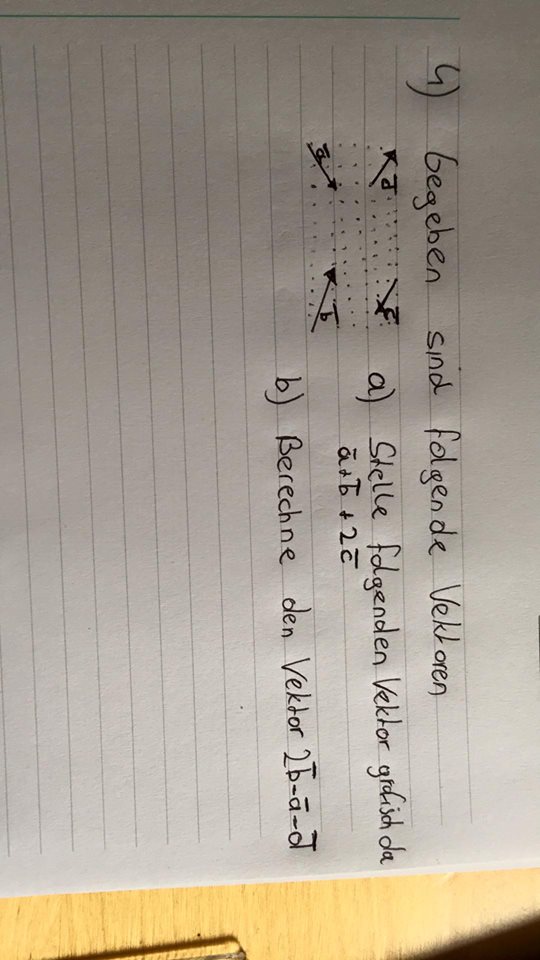 4) Gegeben sind folgende Vektoren
d̅
c̅
a) Stelle folgenden Vektor grafisch da
a̅+b̅+2c̅
a̅
b̅
b) Berechne den Vektor 2b̅-a̅-d̅